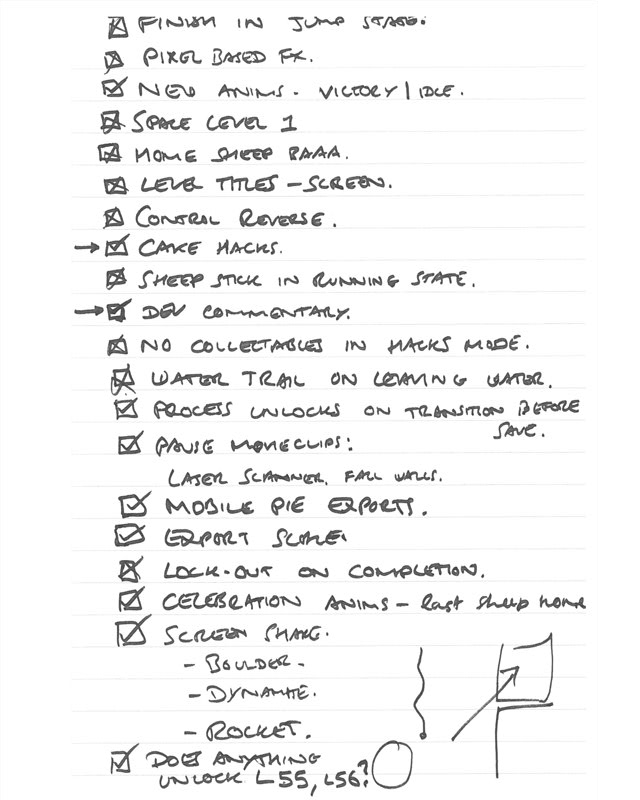 FINISH IN JUMP STATE.
PIXEL BASED FX.
NEW ANIMS - VICTORY | IDLE.
SPACE LEVEL 1
HOME SHEEP BAAA.
LEVEL TITLES - SCREEN.
CONTROL REVERSE.
→ CAKE HACKS.
SHEEP STICK IN RUNNING STATE.
→ DEV COMMENTARY.
NO COLLECTABLES IN HACKS MODE.
WATER TRAIL ON LEAVING WATER.
PROCESS UNLOCKS ON TRANSITION BEFORE
SAVE.
PAUSE MOVIECLIPS:
LASER SCANNER, FALL WALLS.
MOBILE PIE EXPORTS.
EXPORT SCALE.
LOCK-OUT ON COMPLETION.
CELEBRATION ANIMS - last sheep home
SCREEN SHAKE.
- BOULDER -
- DYNAMITE.
- ROCKET.
DOES ANYTHING
UNLOCK L55, L56?